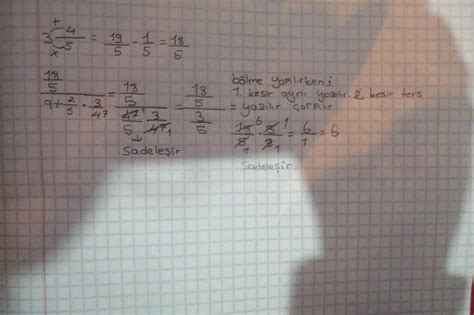 3 4/5 = 19/5 - 1/5 = 18/5
+
x
18/5 / 9+2/5 · 3/47 = 18/5 / 47/5 · 3/47 = 18/5 / 3/5
1
1
Sadeleşir
bölme yapılırken;
1. kesir aynı yazılır. 2. kesir ters
= yazılır çarpılır
18/5 · 5/3 = 6/1 = 6
6 1
1 1
Sadeleşir